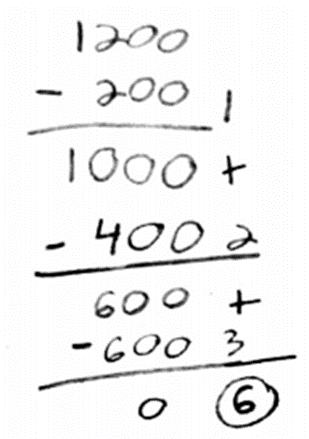 1200
- 200 1
1000 +
- 400 2
600 +
- 600 3
0 6